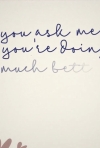 you ask me
you're doin
much bett